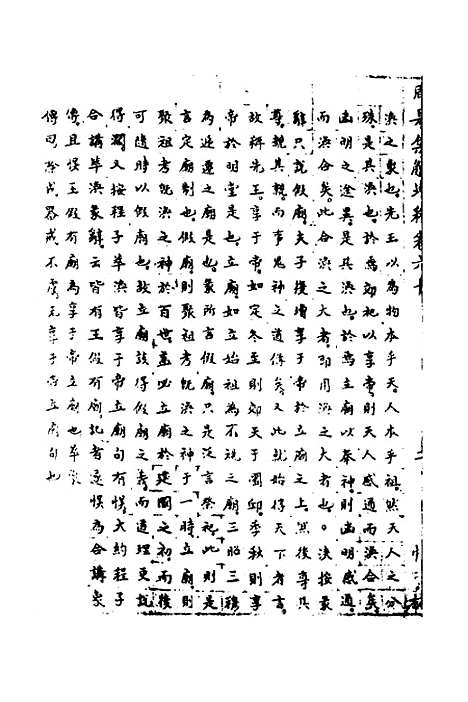 渙之義也先王以為物本乎天人本乎祖然天人之分
殊是其渙也於焉郊祀以享帝則天人感通而渙合矣
幽明之途異是其渙也於焉立廟以奉神則幽明感通
而渙合矣此合渙之大者即用渙之大者也決按彖
辭只說假廟夫子復增享于帝於立廟之上然後尊其
尊親其親而事鬼神之道傳矣又此就始得天下者言
故稱先王享于帝如定冬至則郊天于圜邱季秋則享
帝於明堂是也立廟如立始祖為不祧之廟三昭三穆
為迭遷之廟是也彖所言假廟只是泛言祭祀此則是
言定廟制也假廟則聚祖考既渙之神于一時立廟則
聚祖考既渙之神於百世蓋必立廟於建國之初而後
可隨時以假廟也故立廟該得假廟之義而道理更說
得濶又按程子萃渙皆享于帝立廟句有悞大約程子
合講萃渙彖辭云皆有王假有廟記者遂悞為合講矣
傳且悞王假有廟為享于帝立廟也萃彖
傳司除戎器戒不虞无享于帝立廟句也